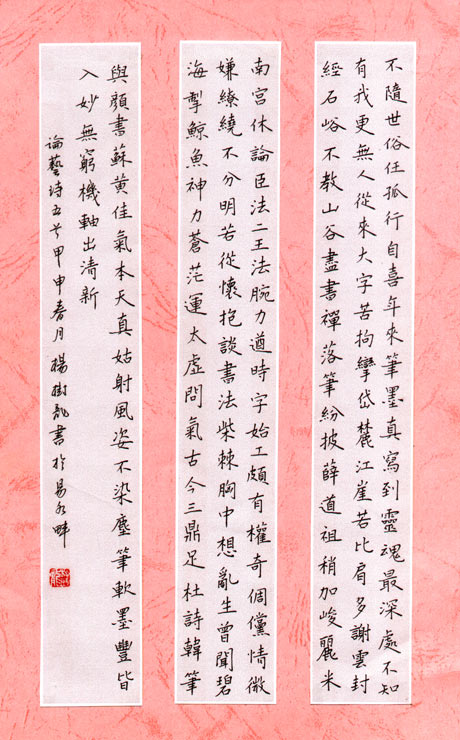 不隨世俗任孤行自喜年來筆墨真寫到靈魂最深處不知
有我更無人從來大字苦拘攣岱麓江崖若比肩多謝雲封
經石峪不教山谷盡書禪落筆紛披薛道祖稍加峻麗米
南宮休論臣法二王法腕力遒時字始工頗有權奇倜儻情微
嫌繚繞不分明若從懷抱談書法柴棘胸中想亂生曾聞碧
海掣鯨魚神力蒼茫運太虛問氣古今三鼎足杜詩韓筆
與顏書蘇黃佳氣本天真姑射風姿不染塵筆軟墨豐皆
入妙無窮機軸出清新
論藝詩五首甲申春月楊樹龍書於易水畔